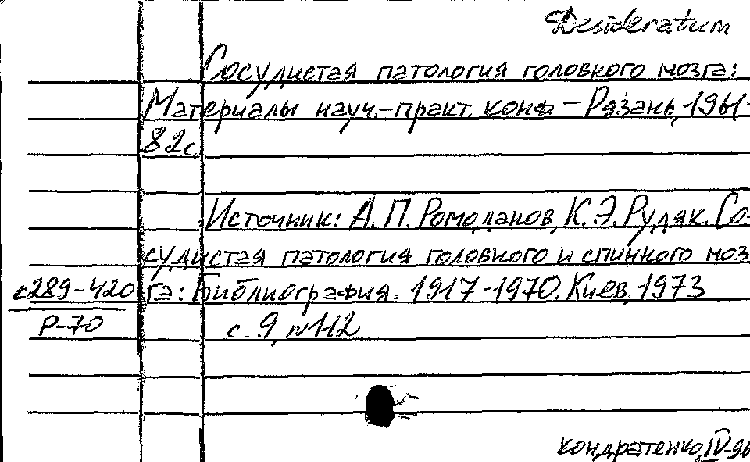 Desideratum
Сосудистая патология головного мозга:
Материалы науч.-практ. конф – Рязань, 1961-
82с
Источник: А.П. Ромоданов, К.Э. Рудяк. Со-
судистая патология головного и спинного моз-
га: Библиография. 1917-1970. Киев, 1973
с289-420
Р-70
с. 9, №112
Кондратенко, IV-90